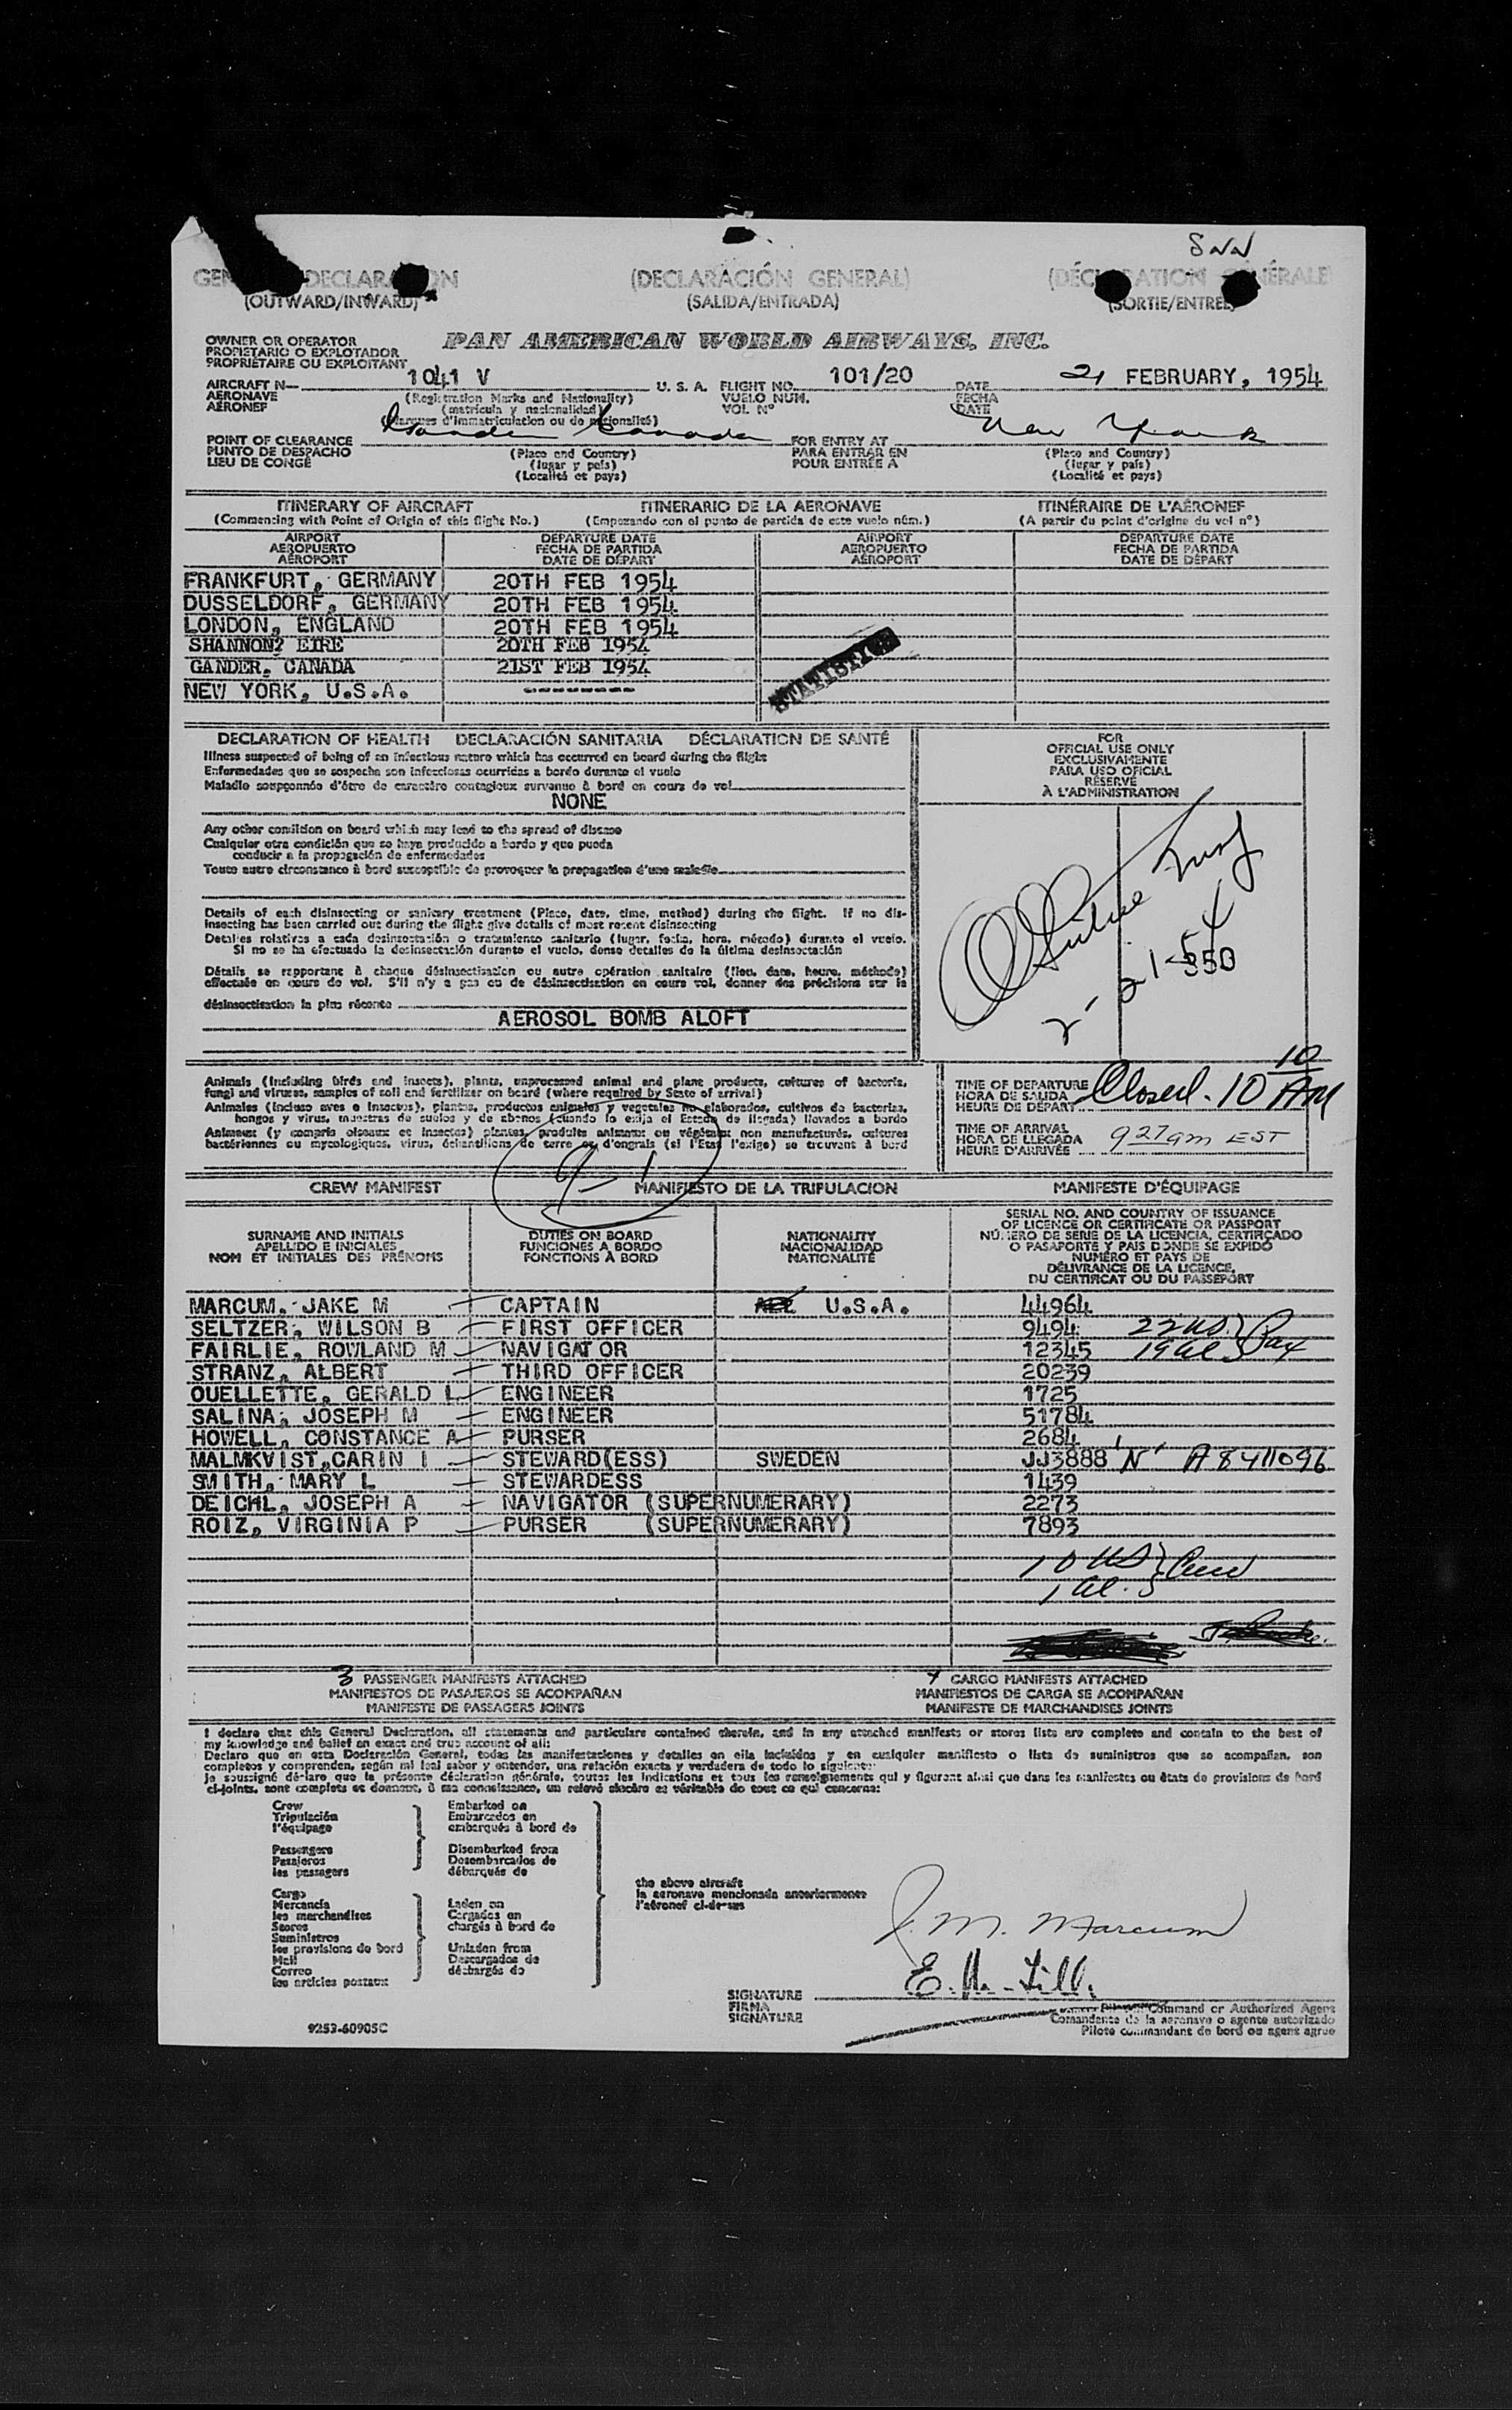 GENERAL DECLARATION (DECLARACIÓN GENERAL) (DÉCLARATION GÉNÉRALE)
(OUTWARD/INWARD) (SALIDA/ENTRADA) (SORTIE/ENTRÉE)
OWNER OR OPERATOR
PROPIETARIO O EXPLOTADOR
PROPRIÉTAIRE OU EXPLOITANT
PAN AMERICAN WORLD AIRWAYS, INC.
AIRCRAFT N— 1041 V U. S. A. FLIGHT NO. 101/20 DATE 21 FEBRUARY, 1954
AERONAVE (Registration Marks and Nationality) VUELO NUM. FECHA
AÉRONEF (matrícula y nacionalidad) VOL Nº DATE
(Marques d'immatriculation ou de nationalité)
POINT OF CLEARANCE Gander Canada FOR ENTRY AT New York
PUNTO DE DESPACHO (Place and Country) PARA ENTRAR EN (Place and Country)
LIEU DE CONGÉ (lugar y país) POUR ENTRÉE À (lugar y país)
(Localité et pays) (Localité et pays)
ITINERARY OF AIRCRAFT ITINERARIO DE LA AERONAVE ITINÉRAIRE DE L'AÉRONEF
(Commencing with Point of Origin of this flight No.) (Empezando con el punto de partida de este vuelo núm.) (A partir du point d'origine du vol nº)
AIRPORT DEPARTURE DATE AIRPORT DEPARTURE DATE
AEROPUERTO FECHA DE PARTIDA AEROPUERTO FECHA DE PARTIDA
AÉROPORT DATE DE DÉPART AÉROPORT DATE DE DÉPART
FRANKFURT, GERMANY 20TH FEB 1954
DUSSELDORF, GERMANY 20TH FEB 1954
LONDON, ENGLAND 20TH FEB 1954
SHANNON? EIRE 20TH FEB 1954
GANDER, CANADA 21ST FEB 1954
NEW YORK, U.S.A. --------
STATISTICS
DECLARATION OF HEALTH DECLARACIÓN SANITARIA DÉCLARATION DE SANTÉ
Illness suspected of being of an infectious nature which has occurred on board during the flight
Enfermedades que se sospecha son infecciosas ocurridas a bordo durante el vuelo
Maladie soupçonnée d'être de caractère contagieux survenue à bord en cours de vol
NONE
Any other condition on board which may lead to the spread of disease
Cualquier otra condición que se haya producido a bordo y que pueda
conducir a la propagación de enfermedades
Toute autre circonstance à bord susceptible de provoquer la propagation d'une maladie
Details of each disinsecting or sanitary treatment (Place, date, time, method) during the flight. If no dis-
insecting has been carried out during the flight give details of most recent disinsecting
Detalles relativos a cada desinsectación o tratamiento sanitario (lugar, fecha, hora, método) durante el vuelo.
Si no se ha efectuado la desinsectación durante el vuelo, dense detalles de la última desinsectación
Détails se rapportant à chaque désinsectisation ou autre opération sanitaire (lieu, date, heure, méthode)
effectuée en cours de vol. S'il n'y a pas eu de désinsectisation en cours vol, donner des précisions sur la
désinsectisation la plus récente
AEROSOL BOMB ALOFT
FOR
OFFICIAL USE ONLY
EXCLUSIVAMENTE
PARA USO OFICIAL
RÉSERVÉ
À L'ADMINISTRATION
2-21-54
550
Animals (including birds and insects), plants, unprocessed animal and plant products, cultures of bacteria,
fungi and viruses, samples of soil and fertilizer on board (where required by State of arrival)
Animales (incluso aves e insectos), plantas, productos animales y vegetales no elaborados, cultivos de bacterias,
hongos y virus, muestras de suelos y de abonos (cuando lo exija el Estado de llegada) llevados a bordo
Animaux (y compris oiseaux et insectes) plantes, produits animaux ou végétaux non manufacturés, cultures
bactériennes ou mycologiques, virus, échantillons de terre ou d'engrais (si l'Etat l'exige) se trouvant à bord
TIME OF DEPARTURE Closed. 10 10 AM
HORA DE SALIDA
HEURE DE DÉPART
TIME OF ARRIVAL
HORA DE LLEGADA 9 27 am EST
HEURE D'ARRIVÉE
9-1
CREW MANIFEST MANIFIESTO DE LA TRIPULACION MANIFESTE D'ÉQUIPAGE
SURNAME AND INITIALS
APELLIDO E INICIALES
NOM ET INITIALES DES PRÉNOMS
DUTIES ON BOARD
FUNCIONES A BORDO
FONCTIONS À BORD
NATIONALITY
NACIONALIDAD
NATIONALITÉ
SERIAL NO. AND COUNTRY OF ISSUANCE
OF LICENCE OR CERTIFICATE OR PASSPORT
NÚMERO DE SERIE DE LA LICENCIA, CERTIFICADO
O PASAPORTE Y PAIS DONDE SE EXPIDÓ
NUMÉRO ET PAYS DE
DÉLIVRANCE DE LA LICENCE,
DU CERTIFICAT OU DU PASSEPORT
MARCUM, JAKE M CAPTAIN U.S.A. 44964
SELTZER, WILSON B FIRST OFFICER 9494 22 US
FAIRLIE, ROWLAND M NAVIGATOR 12345 19 al Pax
STRANZ, ALBERT THIRD OFFICER 20239
OUELLETTE, GERALD L ENGINEER 1725
SALINA, JOSEPH M ENGINEER 51784
HOWELL, CONSTANCE A PURSER 2684
MALMKVIST,CARIN I STEWARD(ESS) SWEDEN JJ3888 'N' A8411096
SMITH, MARY L STEWARDESS 1439
DEICHL, JOSEPH A NAVIGATOR (SUPERNUMERARY) 2273
ROIZ, VIRGINIA P PURSER (SUPERNUMERARY) 7893
10 US
1 al. Crew
3 PASSENGER MANIFESTS ATTACHED CARGO MANIFESTS ATTACHED
MANIFIESTOS DE PASAJEROS SE ACOMPAÑAN MANIFIESTOS DE CARGA SE ACOMPAÑAN
MANIFESTE DE PASSAGERS JOINTS MANIFESTE DE MARCHANDISES JOINTS
I declare that this General Declaration, all statements and particulars contained therein, and in any attached manifests or stores lists are complete and contain to the best of
my knowledge and belief an exact and true account of all:
Declaro que en esta Declaración General, todas las manifestaciones y detalles en ella incluidos y en cualquier manifiesto o lista de suministros que se acompañan, son
completos y comprenden, según mi leal saber y entender, una relación exacta y verdadera de todo lo siguiente:
Je soussigné déclare que la présente déclaration générale, toutes les indications et tous les renseignements qui y figurent ainsi que dans les manifestes ou états de provisions de bord
ci-joints, sont complets et donnent, à ma connaissance, un relevé sincère et véritable de tout ce qui concerne:
Crew Embarked on
Tripulación Embarcados en
l'équipage embarqués à bord de
Passengers Disembarked from
Pasajeros Desembarcados de
les passagers débarqués de
the above aircraft
la aeronave mencionada anteriormente
l'aéronef ci-dessus
Cargo
Mercancía Laden on
les marchandises Cargados en
Stores chargés à bord de
Suministros
les provisions de bord Unladen from
Mail Descargados de
Correo déchargés de
les articles postaux
J. M. Marcum
SIGNATURE
FIRMA
SIGNATURE
Command or Authorized Agent
Comandante de la aeronave o agente autorizado
Pilote commandant de bord ou agent agréé
9253-60905C